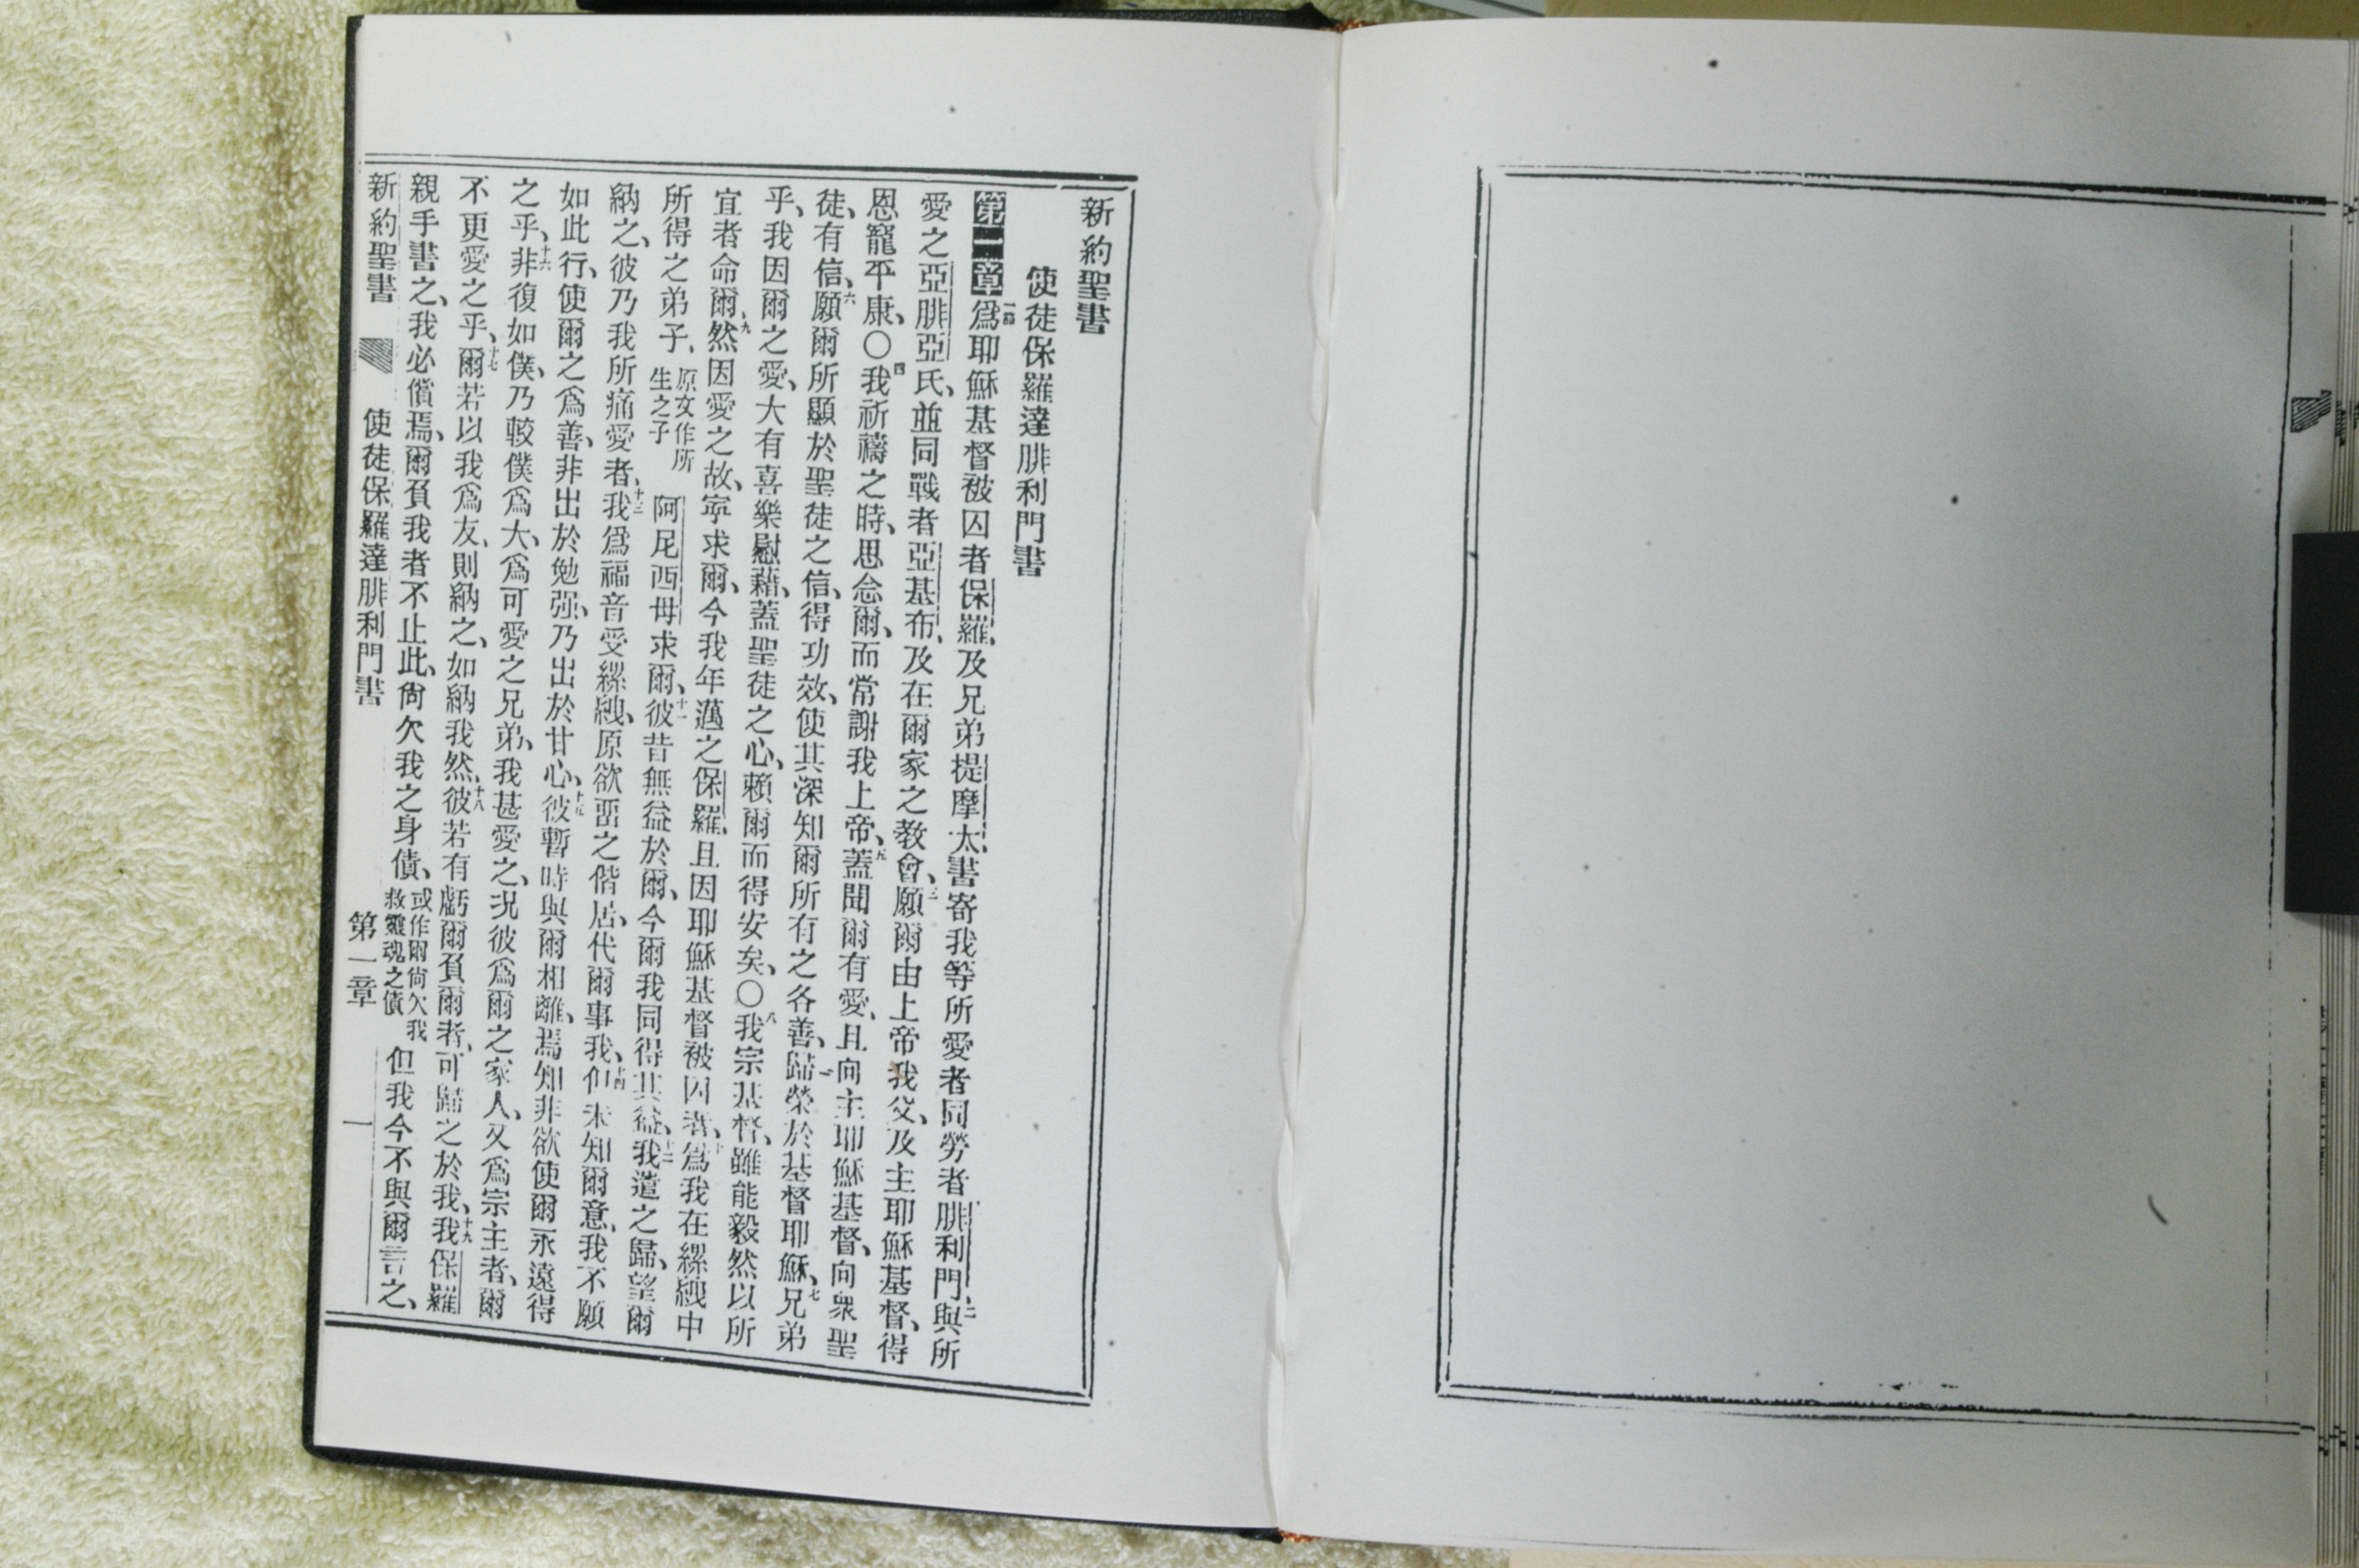 新約聖書
使徒保羅達腓利門書
第一章 一節爲耶穌基督被囚者保羅、及兄弟提摩太、書寄我等所愛者同勞者腓利門、二與所
愛之亞腓亞氏、並同戰者亞基布、及在爾家之教會、三願爾由上帝我父、及主耶穌基督、得
恩寵平康、〇四我祈禱之時、思念爾、而常謝我上帝、五蓋聞爾有愛、且向主耶穌基督、向衆聖
徒、有信、六願爾所顯於聖徒之信、得功效、使其深知爾所有之各善、歸榮於基督耶穌、七兄弟
乎、我因爾之愛、大有喜樂慰藉、蓋聖徒之心、賴爾而得安矣、〇八我宗基督、雖能毅然以所
宜者命爾、九然因愛之故、寧求爾、今我年邁之保羅、且因耶穌基督被囚者、十爲我在縲絏中
所得之弟子、原文作所生之子 阿尼西母求爾、十一彼昔無益於爾、今爾我同得其益、十二我遣之歸、望爾
納之、彼乃我所痛愛者、十三我爲福音受縲絏、原欲畱之偕居、代爾事我、十四但未知爾意、我不願
如此行、使爾之爲善、非出於勉强、乃出於甘心、十五彼暫時與爾相離、焉知非欲使爾永遠得
之乎、十六非復如僕、乃較僕爲大、爲可愛之兄弟、我甚愛之、況彼爲爾之家人、又爲宗主者、爾
不更愛之乎、十七爾若以我爲友、則納之、如納我然、十八彼若有虧爾負爾者、可歸之於我、十九我保羅
親手書之、我必償焉、爾負我者不止此、尙欠我之身債、或作爾尙欠我救靈魂之債 但我今不與爾言之、
新約聖書 使徒保羅達腓利門書 第一章 一